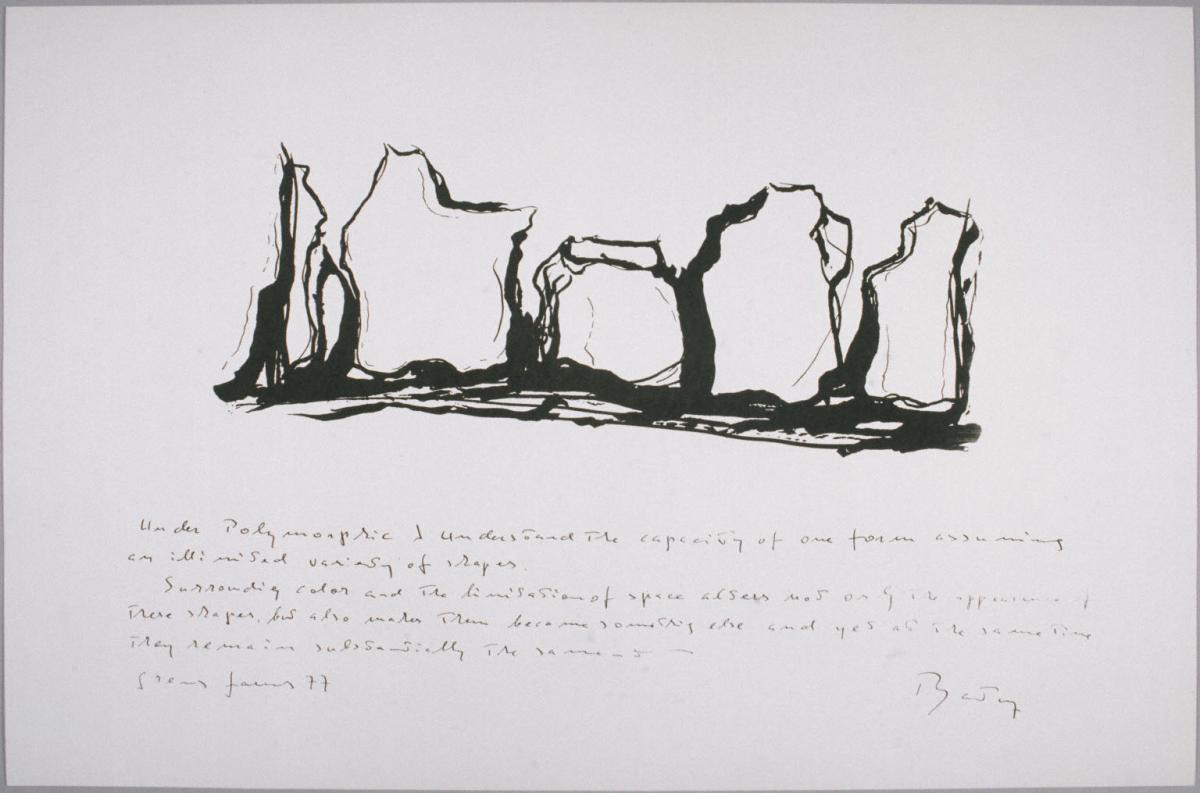 Under Polymorphic I understand the capacity of one form assuming
an illimited variety of shapes.
Surrondig color and the limitation of space alters not only the appearance of
these shapes, but also makes them become something else and yet at the same time
they remain substantially the same
77